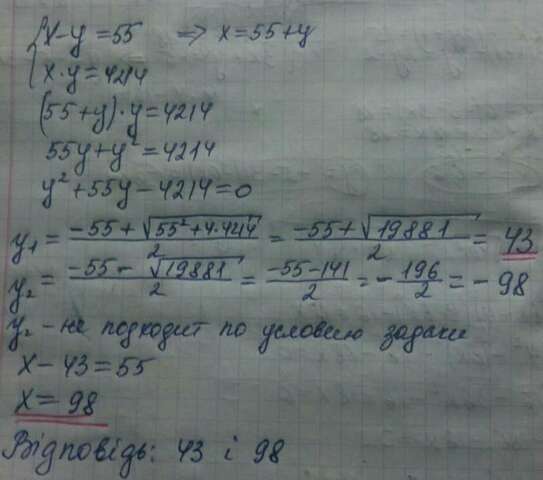 {x-y=55 => x=55+y
{x·y=4214
(55+y)·y=4214
55y+y²=4214
y²+55y-4214=0
y₁=(-55+√(55²+4·4214))/2=(-55+√19881)/2=43
y₂=(-55-√19881)/2=(-55-141)/2=-196/2=-98
y₂-не подходит по условию задачи
x-43=55
x=98
Відповідь: 43 і 98